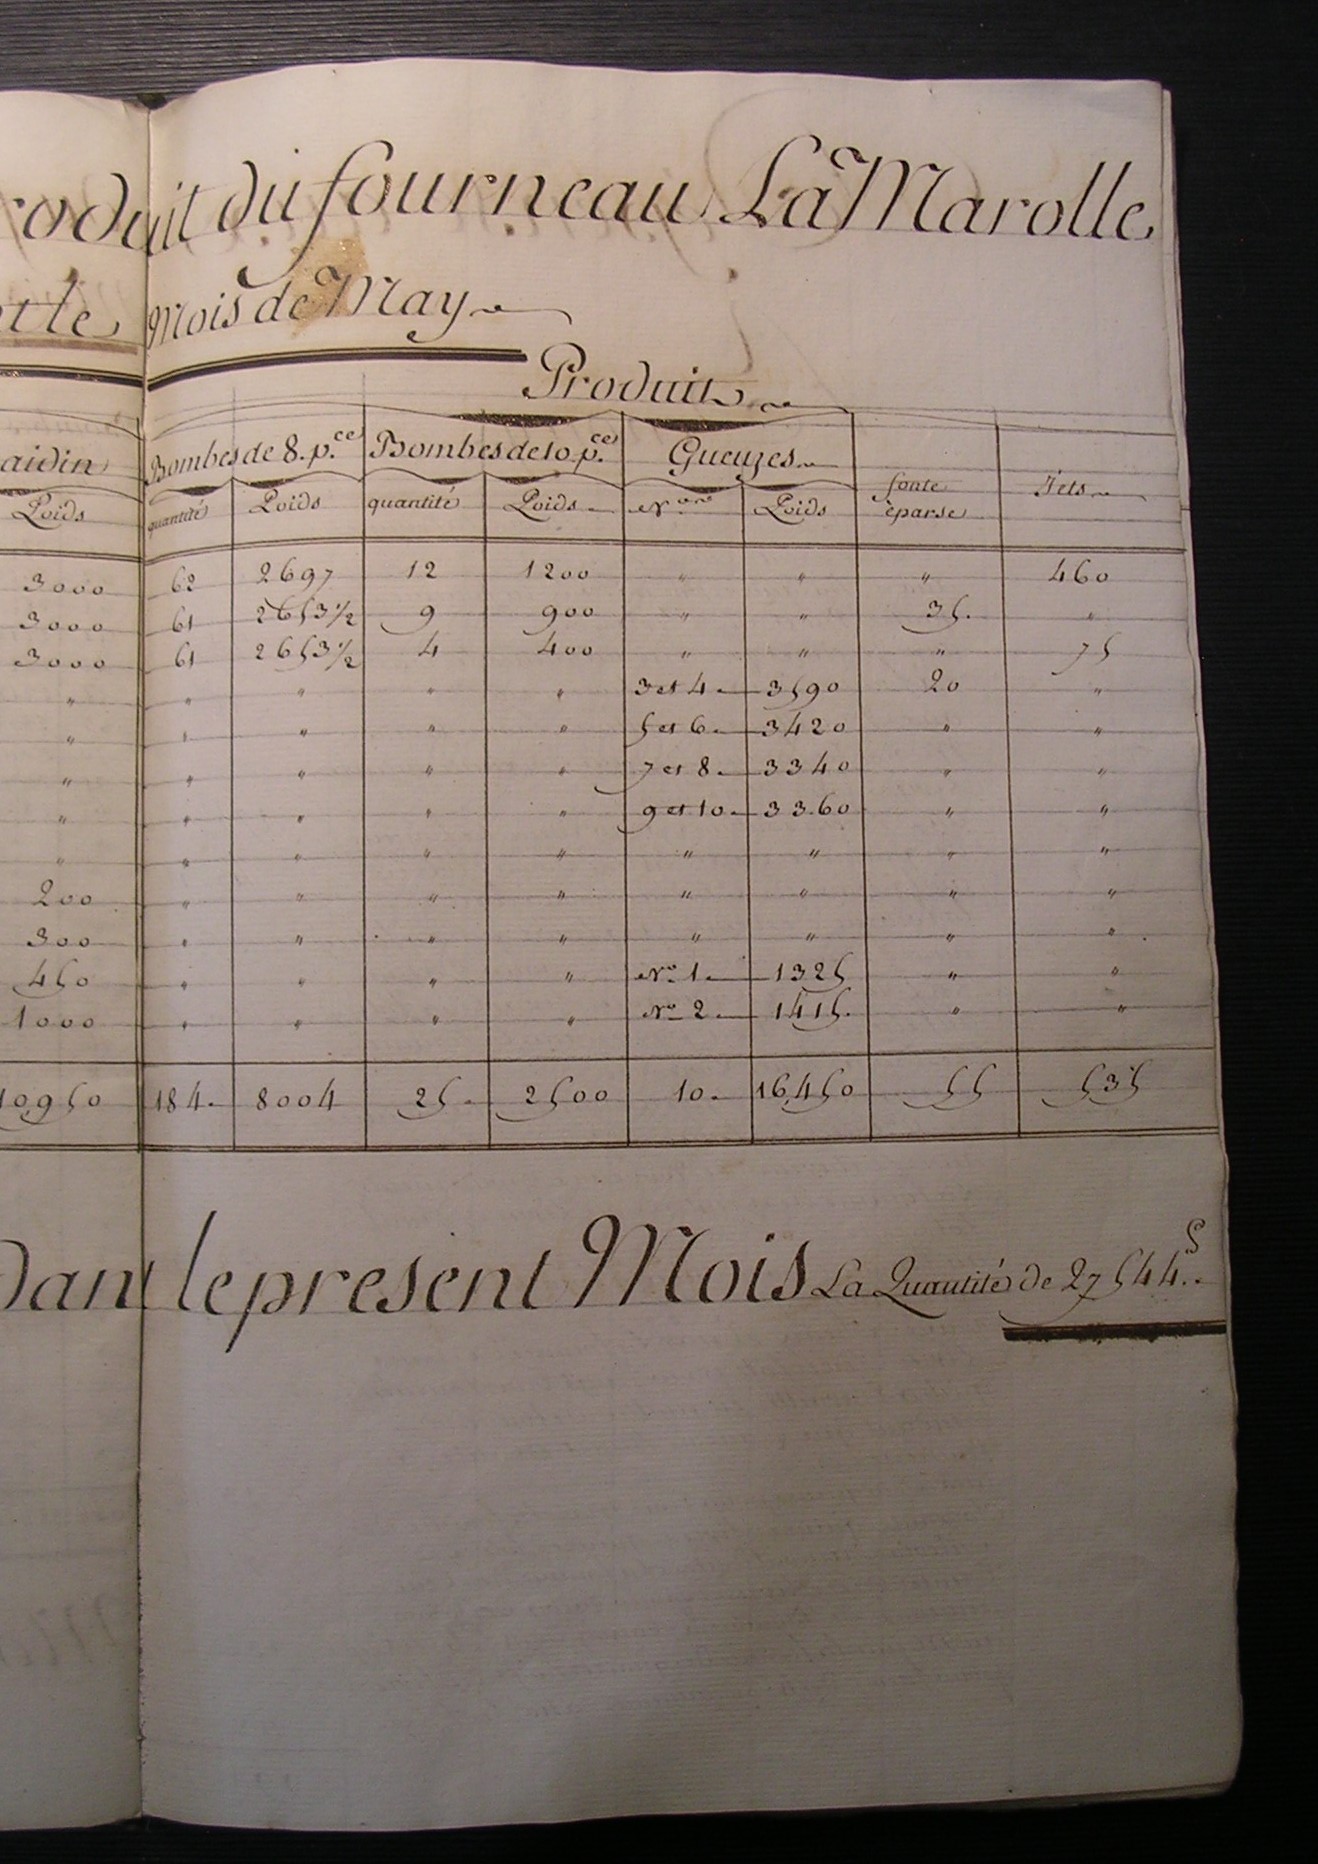 roduit du fourneau La Marolle
et le Mois de May
Produit
aidin Bombes de 8. p.ces Bombes de 10 p.ces Gueuzes fonte éparse Jets
Poids quantité Poids quantité Poids Nos Poids
3000 62 2697 12 1200 " " " 460
3000 61 2653 1/2 9 900 " " 35. "
3000 61 2653 1/2 4 400 " " " 75
" " " " " 3 et 4 3590 20 "
" " " " " 5 et 6 3420 " "
" " " " " 7 et 8 3340 " "
" " " " " 9 et 10 3360 " "
" " " " " " " " "
200 " " " " " " " "
300 " " " " " " " "
450 " " " " No 1 1325 " "
1000 " " " " No 2 1415. " "
10,950 184. 8004 25. 2500 10. 16,450 55 535
dant le present Mois La Quantité de 27544.